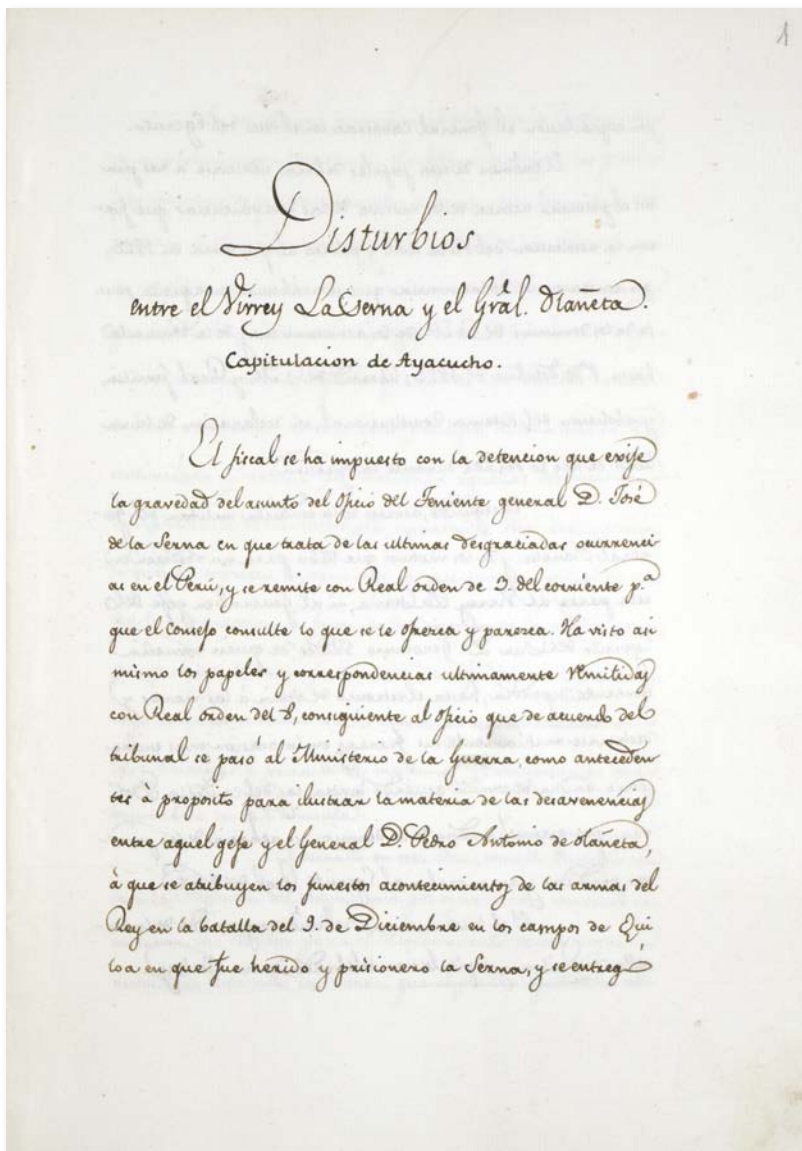 1
Disturbios
entre el Virrey La Serna y el Gräl. Olañeta.
Capitulacion de Ayacucho.
El fiscal se ha impuesto con la detencion que exije
la gravedad del asunto del Oficio del Teniente general D. José
de la Serna en que trata de las ultimas desgraciadas ocurrenci
as en el Perú, y se remite con Real orden de 9. del corriente p.ª
que el Consejo consulte lo que se le ofrezca y paresca. Ha visto asi
mismo los papeles y correspondencias ultimamente remitidas
con Real orden del 8, consiguiente al oficio que de acuerdo del
tribunal se pasó al Ministerio de la Guerra, como anteceden
tes à proposito para ilustrar la materia de las desavenencias
entre aquel gefe y el General D. Pedro Antonio de Olañeta,
à que se atribuyen los funestos acontecimientos de las armas del
Rey en la batalla del 9. de Diciembre en los campos de Qui
noa en que fue herido y prisionero la Serna, y se entregó